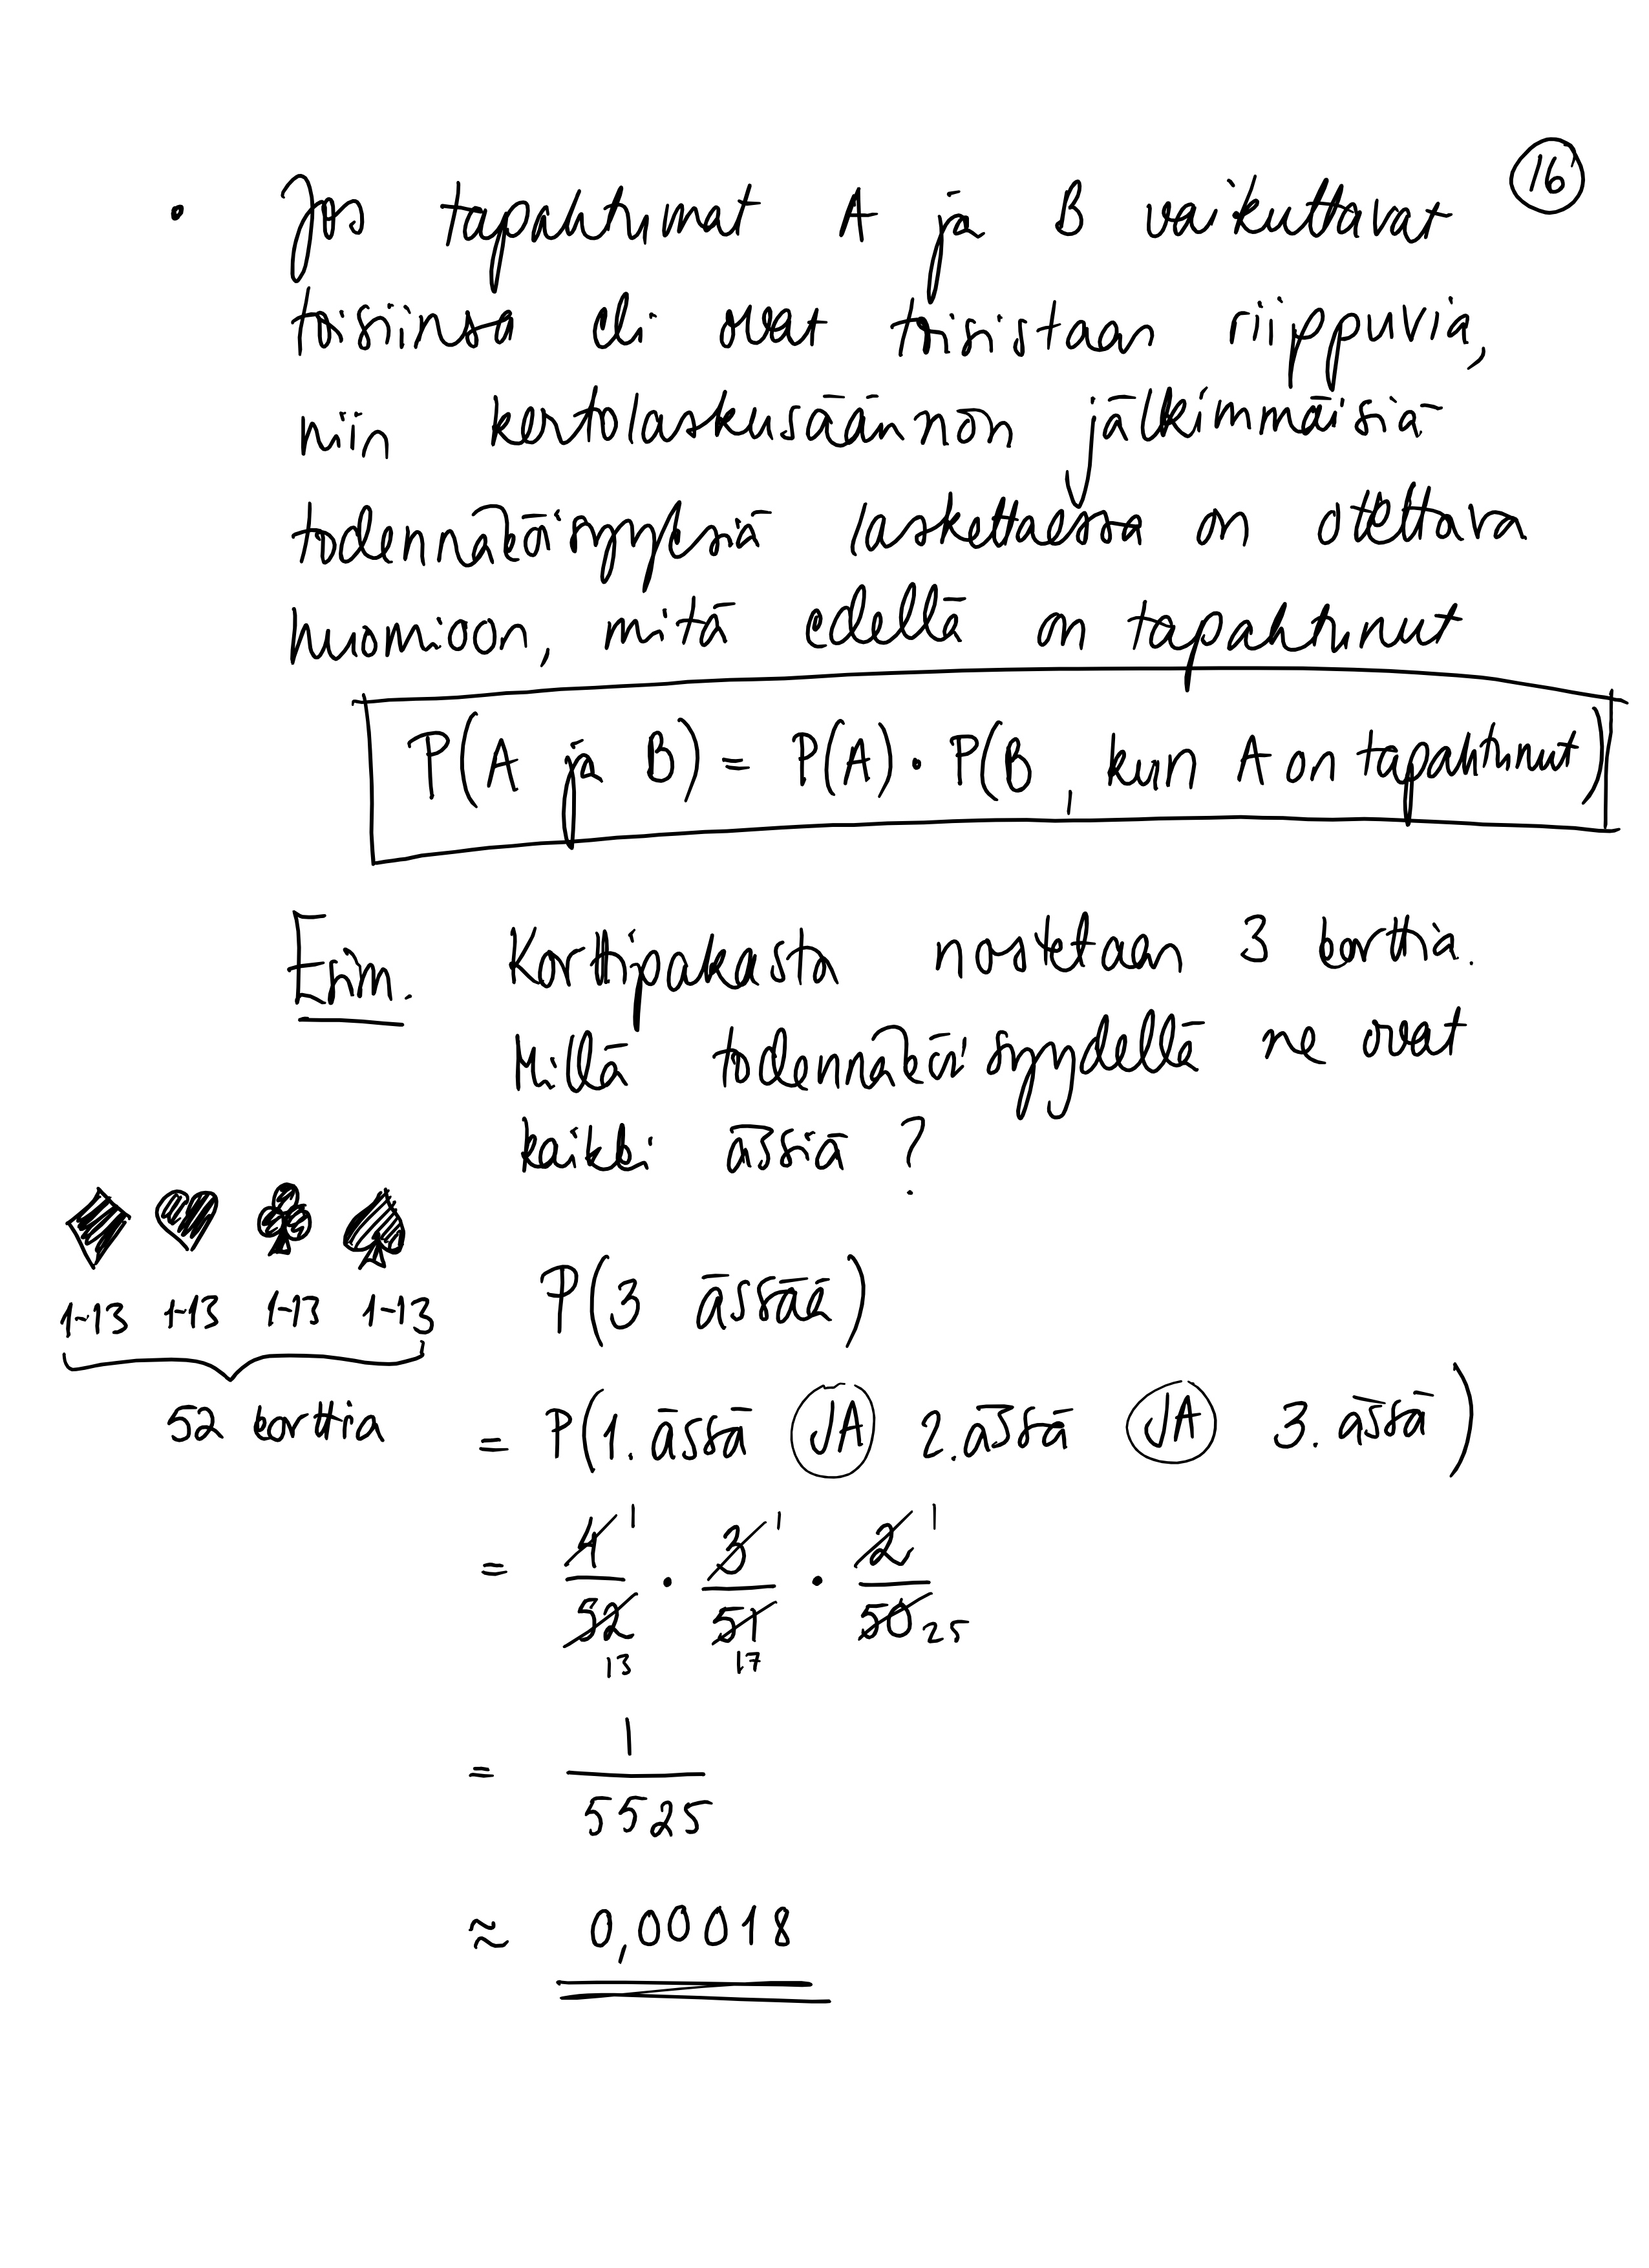 16
• Jos tapahtumat A ja B vaikuttavat
toisiinsa eli ovat toisistaan riippuvia,
niin kertolaskusäännön jälkimmäisiä
todennäköisyyksiä laskettaessa on otettava
huomioon, mitä edellä on tapahtunut
P(A ja B) = P(A) · P(B, kun A on tapahtunut)
Esim. Korttipakasta nostetaan 3 korttia.
Millä todennäköisyydellä ne ovat
kaikki ässiä?
1-13 1-13 1-13 1-13
52 korttia
P(3 ässää)
= P(1. ässä JA 2. ässä JA 3. ässä)
= 4/52 · 3/51 · 2/50
1 1 1
13 17 25
= 1/5525
≈ 0,00018